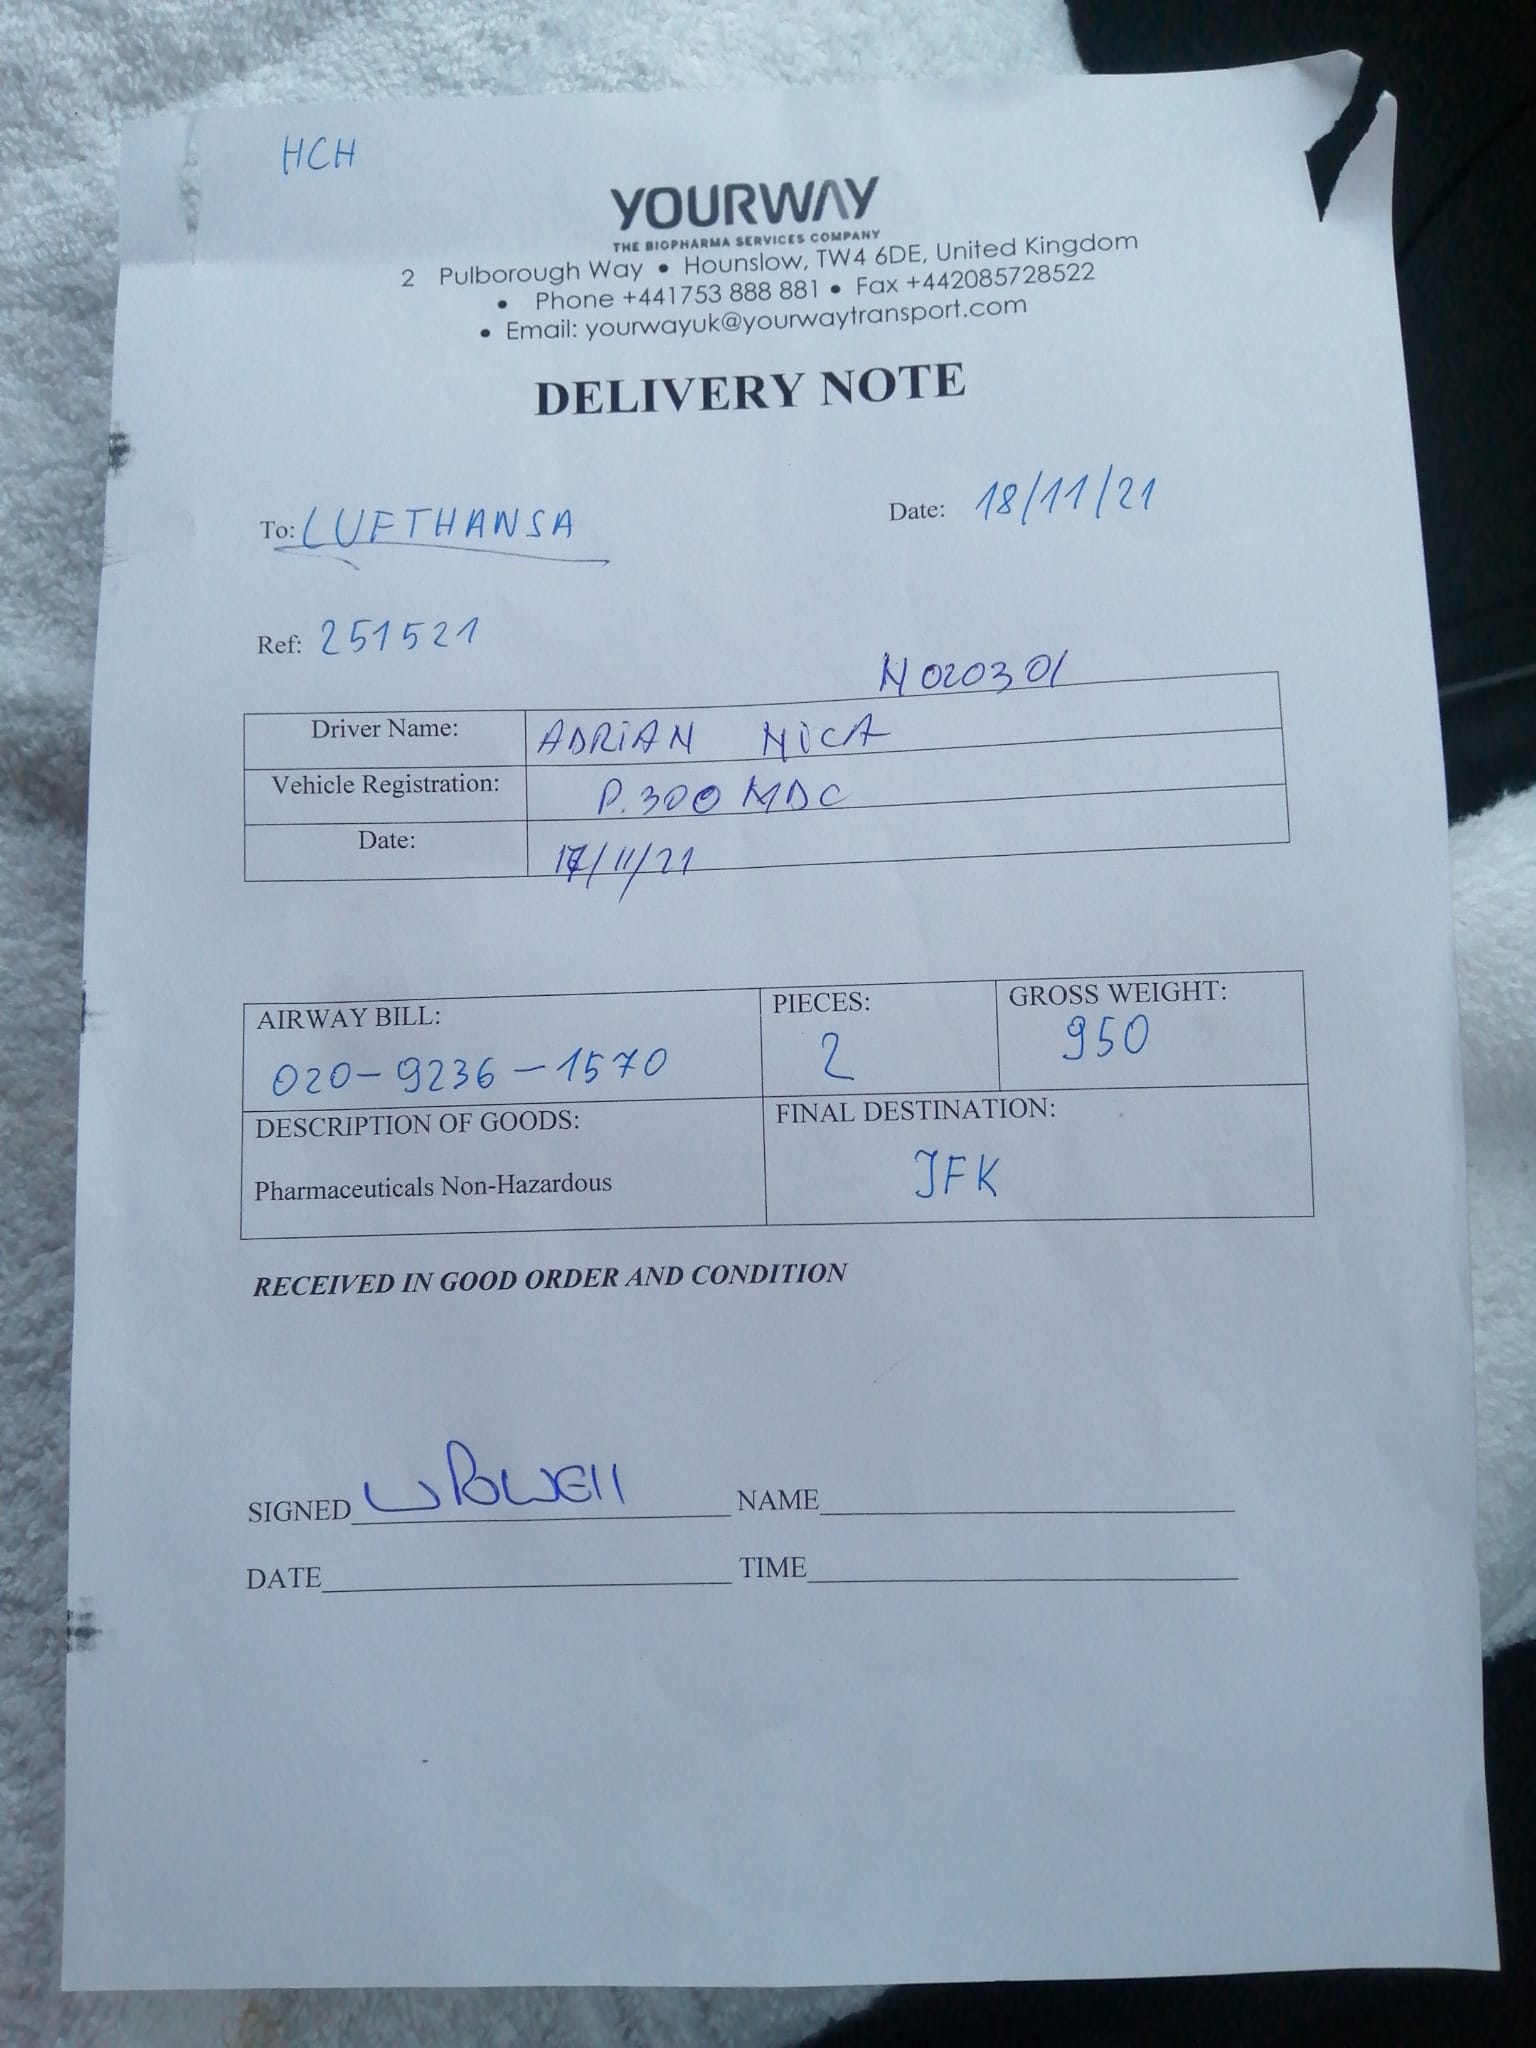 HCH
YOURWAY
THE BIOPHARMA SERVICES COMPANY
2 Pulborough Way • Hounslow, TW4 6DE, United Kingdom
• Phone +441753 888 881 • Fax +442085728522
• Email: yourwayuk@yourwaytransport.com
DELIVERY NOTE
To: LUFTHANSA Date: 18/11/21
Ref: 251521
N020301
Driver Name: ADRIAN NICA
Vehicle Registration: P.300 MDC
Date: /11/21
AIRWAY BILL: PIECES: GROSS WEIGHT:
020-9236-1570 2 950
DESCRIPTION OF GOODS: FINAL DESTINATION:
Pharmaceuticals Non-Hazardous JFK
RECEIVED IN GOOD ORDER AND CONDITION
SIGNED Powell NAME
DATE TIME